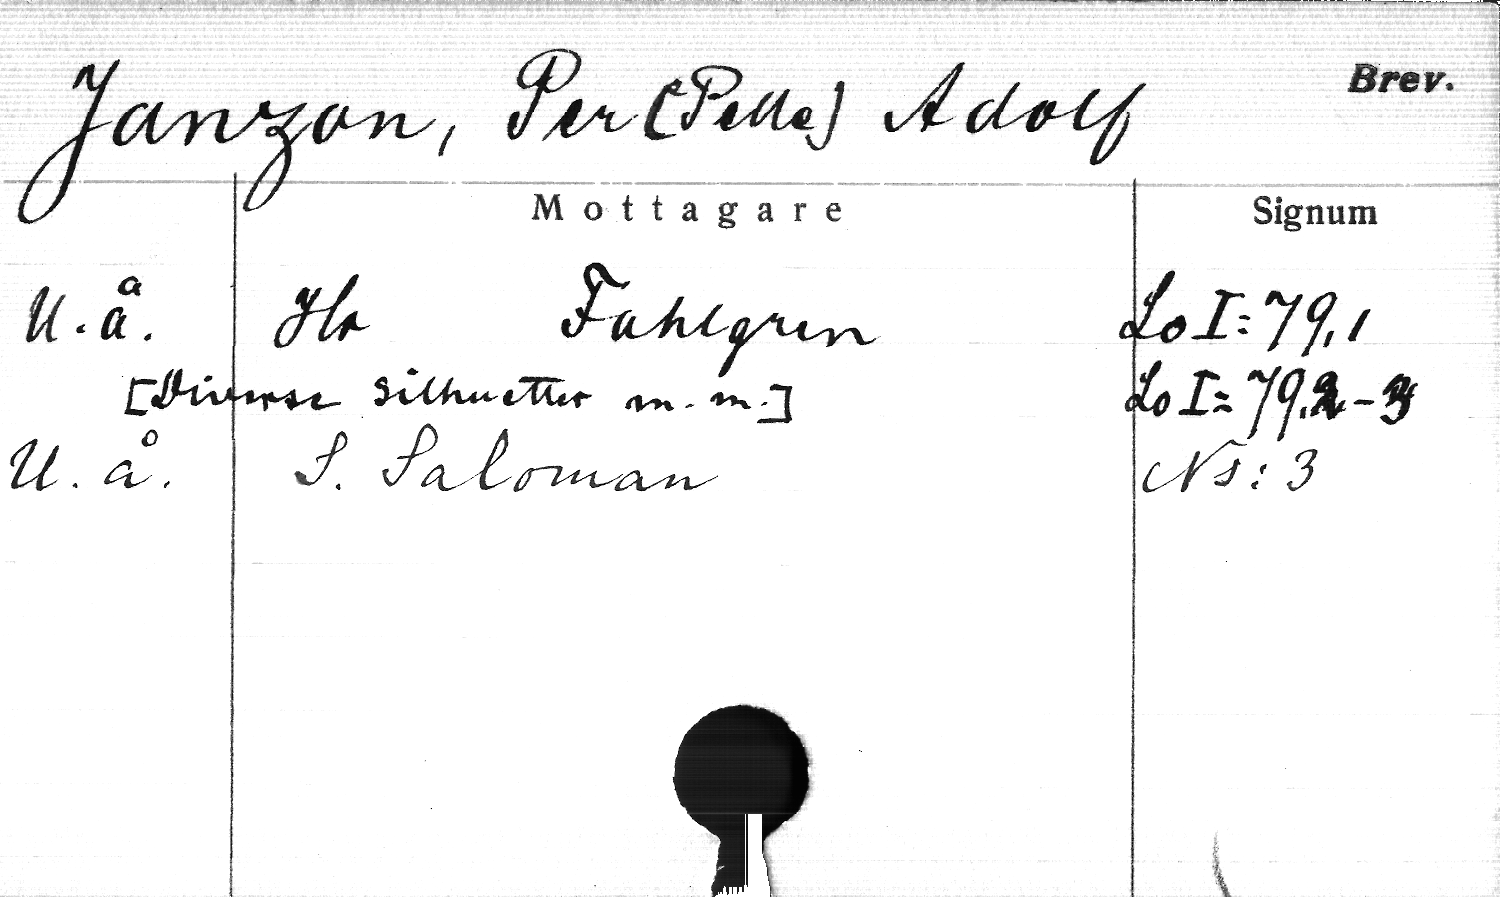 Janzon, Per (Pelle) Adolf
Brev.
Mottagare Signum
U. å. Hr Fahlgren Lo I: 79,1
[Diverse silhuetter m. m.] Lo I: 79,2-3
U. å. S. Saloman Ns: 3